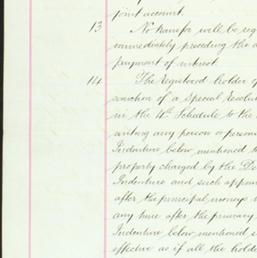 joint account.
13 No transfer will be reg
immediately preceding the d
payment of interest.
14 The Registered holder of
sanction of a Special Resolu
in the 4th Schedule to the
writing any person or persons
Indenture below mentioned to
property charged by the De
Indenture and such appoin
after the principal moneys
any time after the primary
Indenture below mentioned
effective as if all the hold